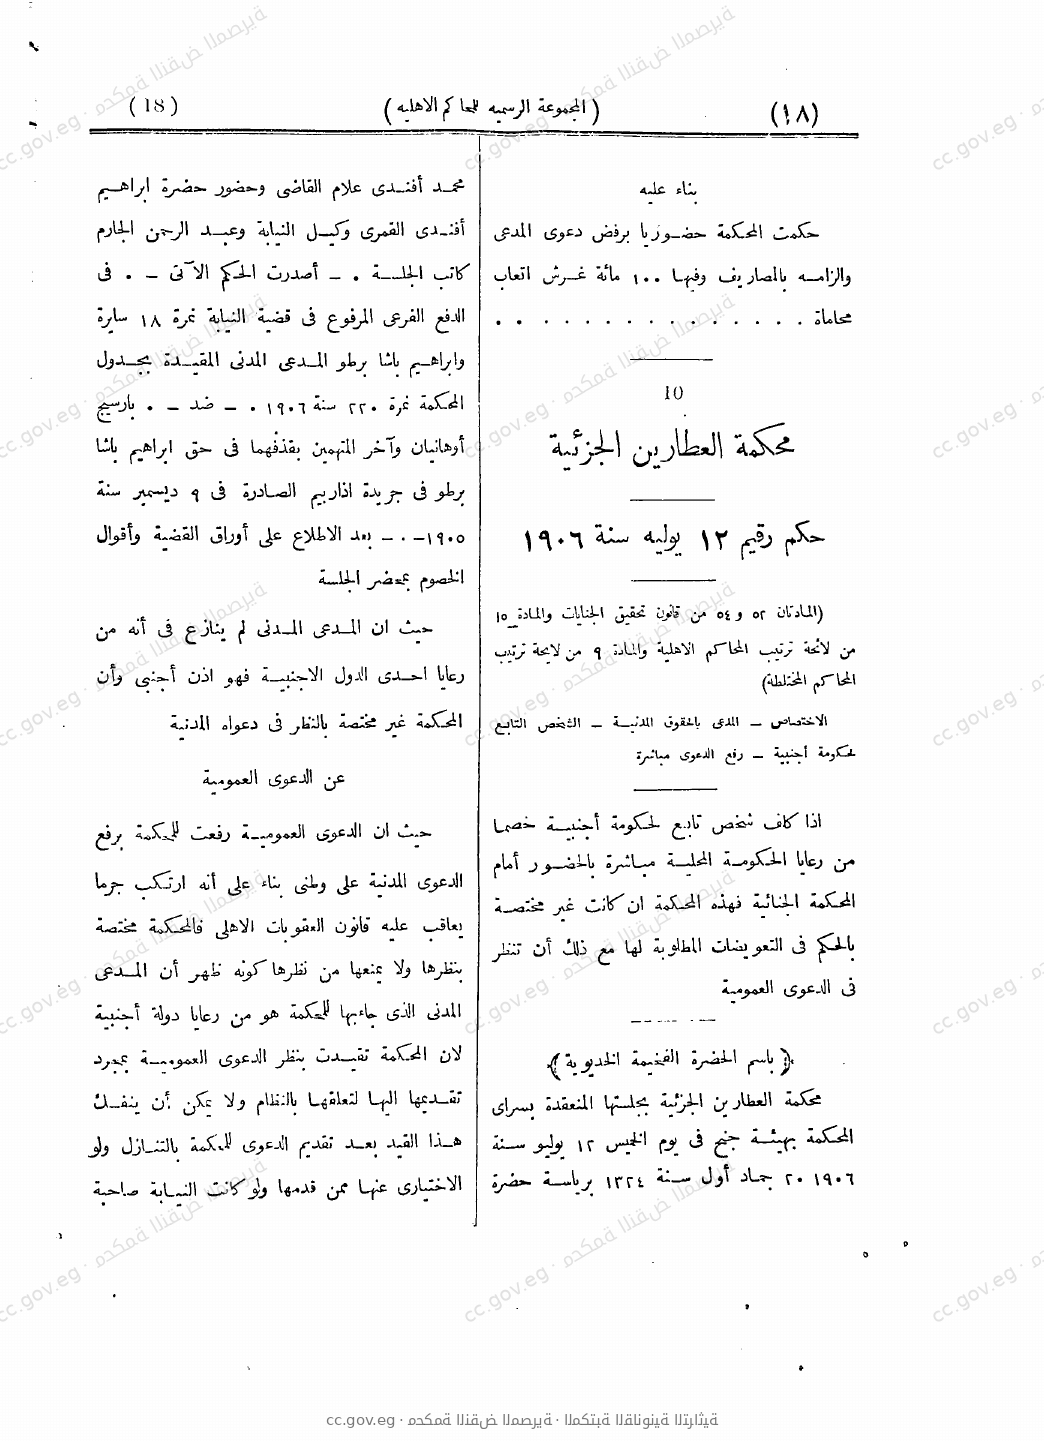 (١٨)
(المجموعة الرسميه للمحاكم الاهليه)
(18)
بناء عليه
حكمت المحكمة حضوريا برفض دعوى المدعى
والزامه بالمصاريف وفيها ١٠٠ مائة غرش اتعاب
محاماة . . . . . . . . . . . . . .
10
محكمة العطارين الجزئية
حكم رقيم ١٢ يوليه سنة ١٩٠٦
(المادتان ٥٢ و ٥٤ من قانون تحقيق الجنايات والمادة ١٥
من لائحة ترتيب المحاكم الاهلية والمادة ٩ من لايحة ترتيب
المحاكم المختلطة)
الاختصاص – المدعى بالحقوق المدنية – الشخص التابع
لحكومة أجنبية – رفع الدعوى مباشرة
اذا كلف شخص تابع لحكومة أجنبية خصما
من رعايا الحكومة المحلية مباشرة بالحضور أمام
المحكمة الجنائية فهذه المحكمة ان كانت غير مختصة
بالحكم فى التعويضات المطلوبة لها مع ذلك أن تنظر
فى الدعوى العمومية
(باسم الحضرة الفخيمة الخديوية)
محكمة العطارين الجزئية بجلستها المنعقدة بسراى
المحكمة بهيئة جنح فى يوم الخميس ١٢ يوليو سنة
١٩٠٦ ٢٠ جماد أول سنة ١٣٢٤ برياسة حضرة
محمد أفندى علام القاضى وحضور حضرة ابراهيم
أفندى القمرى وكيل النيابة وعبد الرحمن الجارم
كاتب الجلسة . – أصدرت الحكم الآتى – . فى
الدفع الفرعى المرفوع فى قضية النيابة نمرة ١٨ سايرة
وابراهيم باشا برطو المدعى المدنى المقيدة بجدول
المحكمة نمرة ٢٢٠ سنة ١٩٠٦ . – ضد – . بارسيج
أوهانيان وآخر المتهمين بقذفهما فى حق ابراهيم باشا
برطو فى جريدة اذاربيم الصادرة فى ٩ ديسمبر سنة
١٩٠٥ – . – بعد الاطلاع على أوراق القضية وأقوال
الخصوم بمحضر الجلسة
حيث ان المدعى المدنى لم ينازع فى أنه من
رعايا احدى الدول الاجنبية فهو اذن أجنبى وأن
المحكمة غير مختصة بالنظر فى دعواه المدنية
عن الدعوى العمومية
حيث ان الدعوى العمومية رفعت للمحكمة برفع
الدعوى المدنية على وطنى بناء على أنه ارتكب جرما
يعاقب عليه قانون العقوبات الاهلى فالمحكمة مختصة
بنظرها ولا يمنعها من نظرها كونه ظهر أن المدعى
المدنى الذى جاء بها للمحكمة هو من رعايا دولة أجنبية
لان المحكمة تقيدت بنظر الدعوى العمومية بمجرد
تقديمها اليها لتعلقها بالنظام ولا يمكن أن ينفك
هذا القيد بعد تقديم الدعوى للمحكمة بالتنازل ولو
الاختيارى عنها ممن قدمها ولو كانت النيابة صاحبة
cc.gov.eg · محكمة النقض المصرية · المكتبة القانونية التراثية